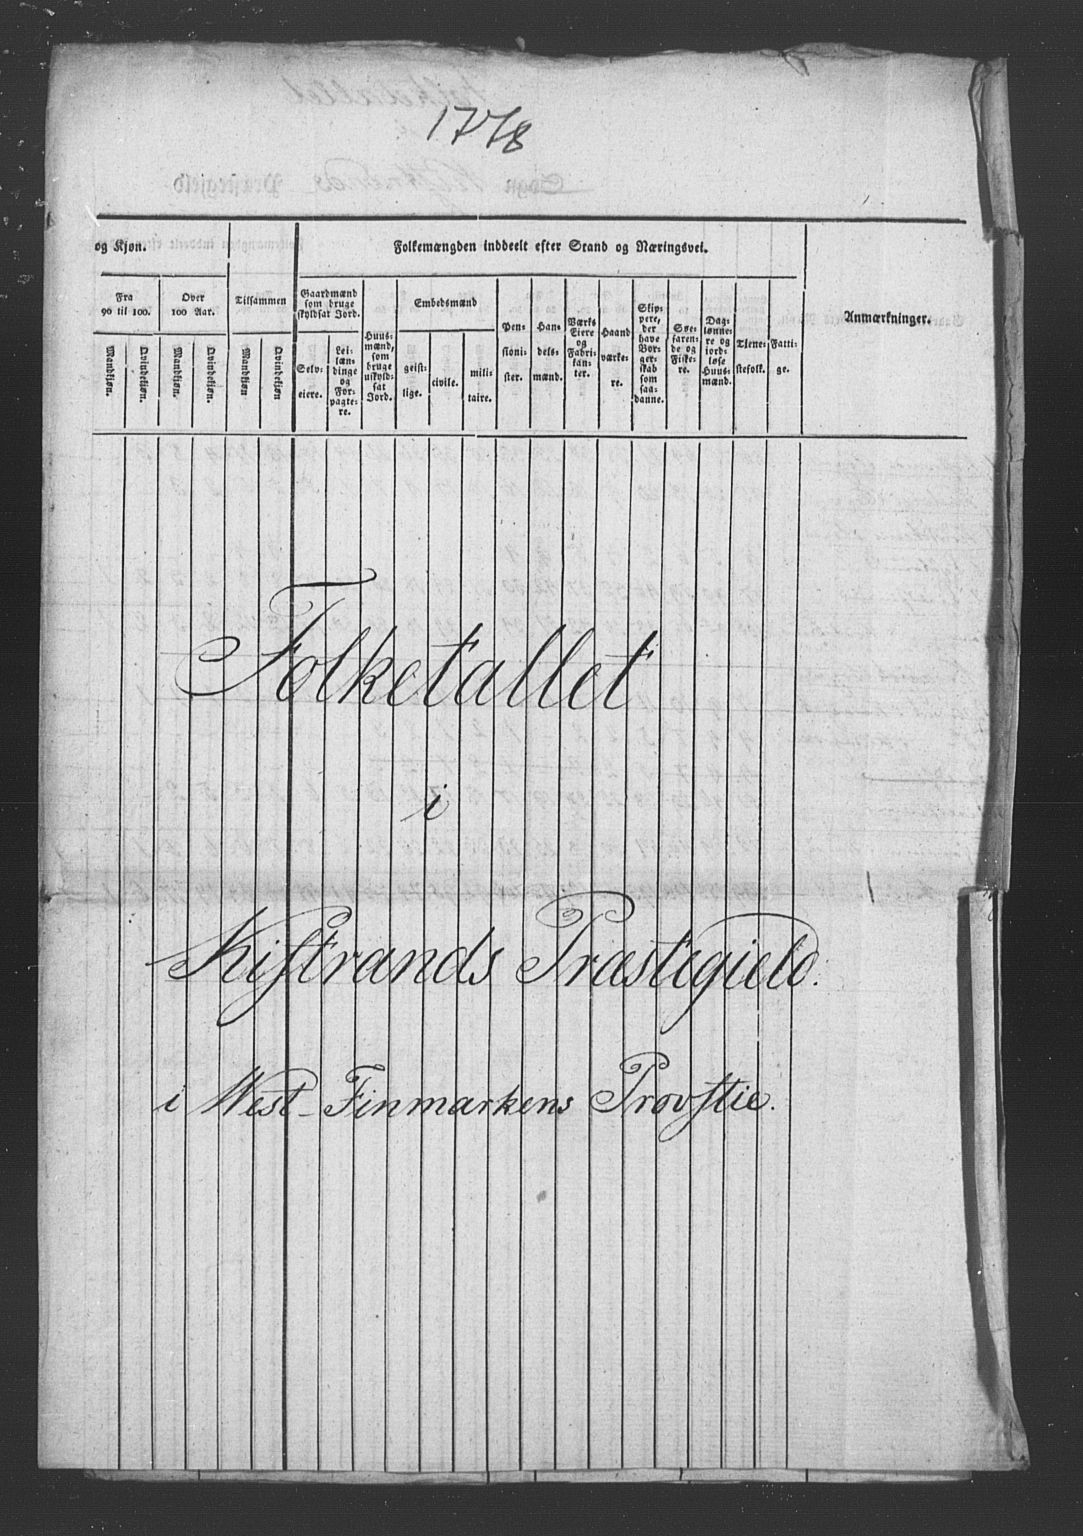 1778
og Kjøn.
Folkemængden inddeelt efter Stand og Næringsvei.
Fra
90 til 100.
Over
100 Aar.
Tilsammen
Gaardmænd
som bruge
skyldsat Jord.
Huus-
mænd,
som
bruge
uskyld-
sat
Jord.
Embedsmænd
Pen-
sioni-
ster.
Han-
dels-
mænd.
Værks
Eiere
og
Fabri-
kan-
ter.
Haand
værke-
re.
Skip-
pere,
der
have
Bor-
ger-
skab
som
saa-
danne.
Søe-
faren-
de og
Fiske-
re.
Dag-
lønne-
re og
jord-
løse
Huus-
mænd.
Tiene-
stefolk.
Fatti-
ge.
Anmærkninger.
Mandkjøn.
Qvindekjøn.
Mandkjøn.
Qvindekjøn.
Mandkjøn
Qvindekjøn
Selv-
eiere.
Lei-
læn-
dinge
og
For-
pagte-
re.
geist-
lige.
civile.
mili-
taire.
Folketallet
i
Kistrands Præstegield.
i West-Finmarkens Provstie.